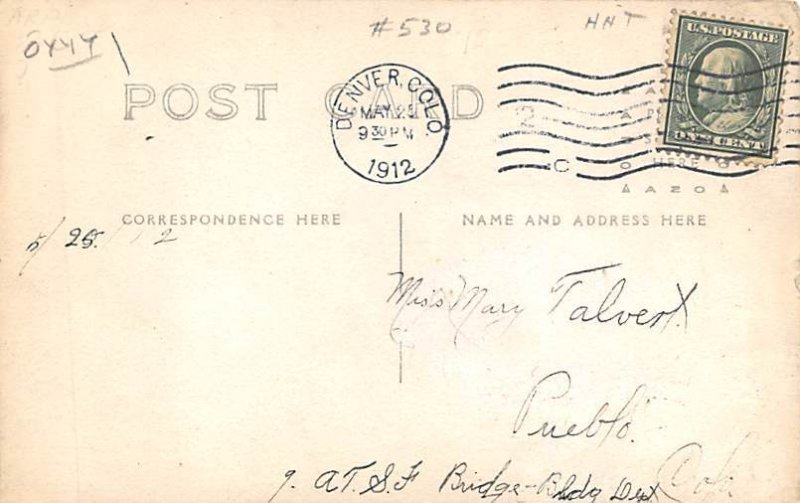 #530 HNT
OYYY
U.S. POSTAGE
POST CARD
DENVER, COLO.
MAY 25
9 30 PM
1912
2
C
ONE CENT
HERE
AZO
CORRESPONDENCE HERE
NAME AND ADDRESS HERE
5/25/12
Miss Mary Talvert
Pueblo.
Colo
% A.T.S.F Bridge-Bldg Dept